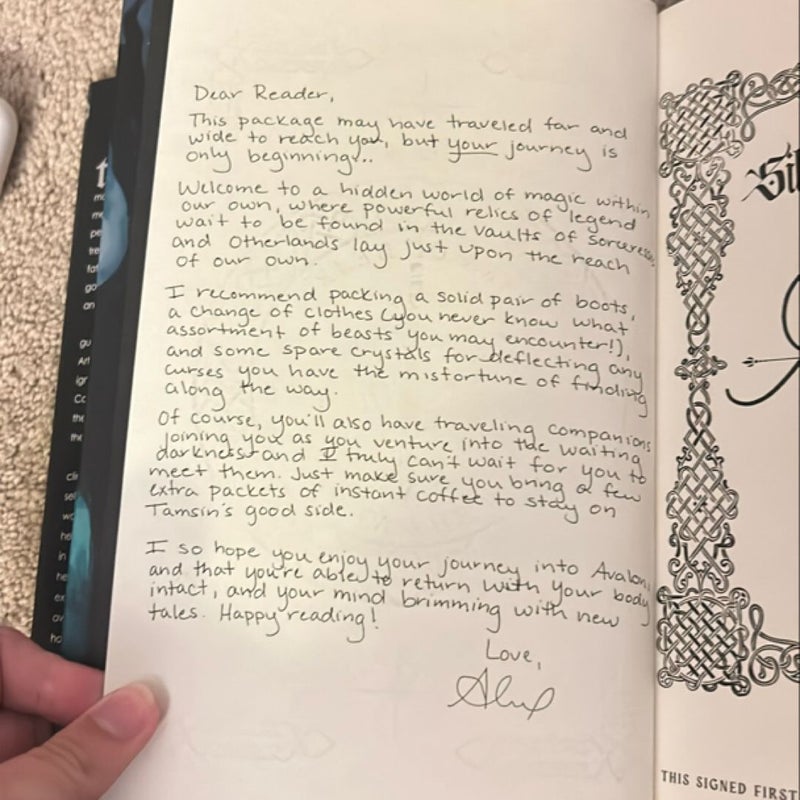 Dear Reader,
This package may have traveled far and
wide to reach you, but your journey is
only beginning...
Welcome to a hidden world of magic within
our own, where powerful relics of legend
wait to be found in the vaults of sorceresses,
and Otherlands lay just upon the reach
of our own.
I recommend packing a solid pair of boots,
a change of clothes (you never know what
assortment of beasts you may encounter!),
and some spare crystals for deflecting any
curses you have the misfortune of finding
along the way.
Of course, you'll also have traveling companions
joining you as you venture into the waiting
darkness and I truly can't wait for you to
meet them. Just make sure you bring a few
extra packets of instant coffee to stay on
Tamsin's good side.
I so hope you enjoy your journey into Avalon,
and that you're able to return with your body
intact, and your mind brimming with new
tales. Happy reading!
Love,
Sil
THIS SIGNED FIRST